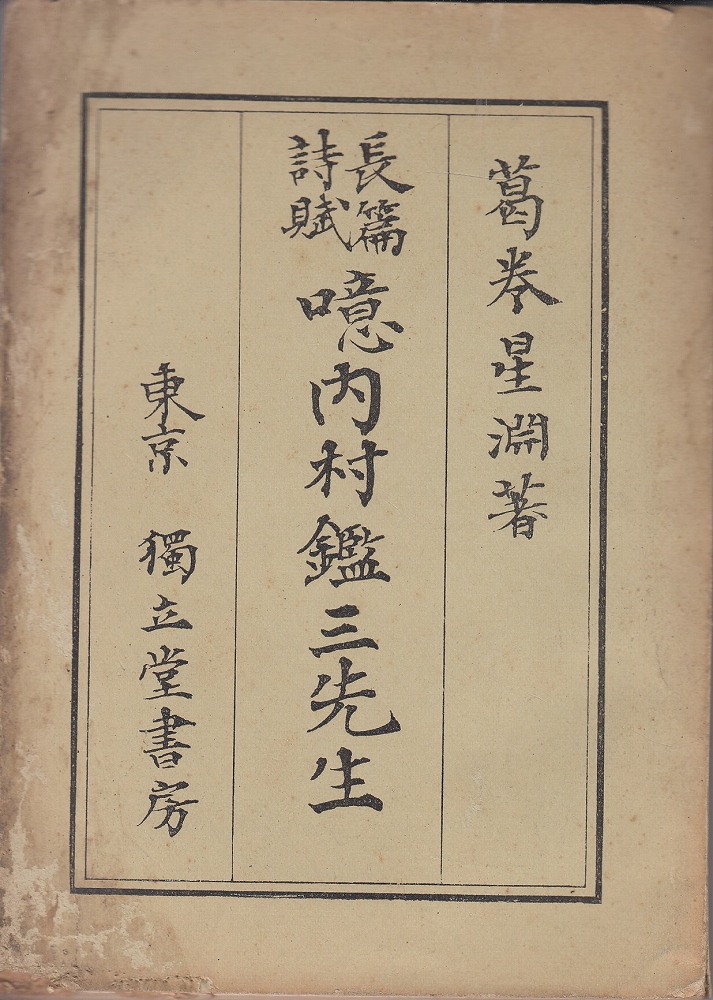 葛巻星淵著
長篇
詩賦
噫内村鑑三先生
東京 獨立堂書房